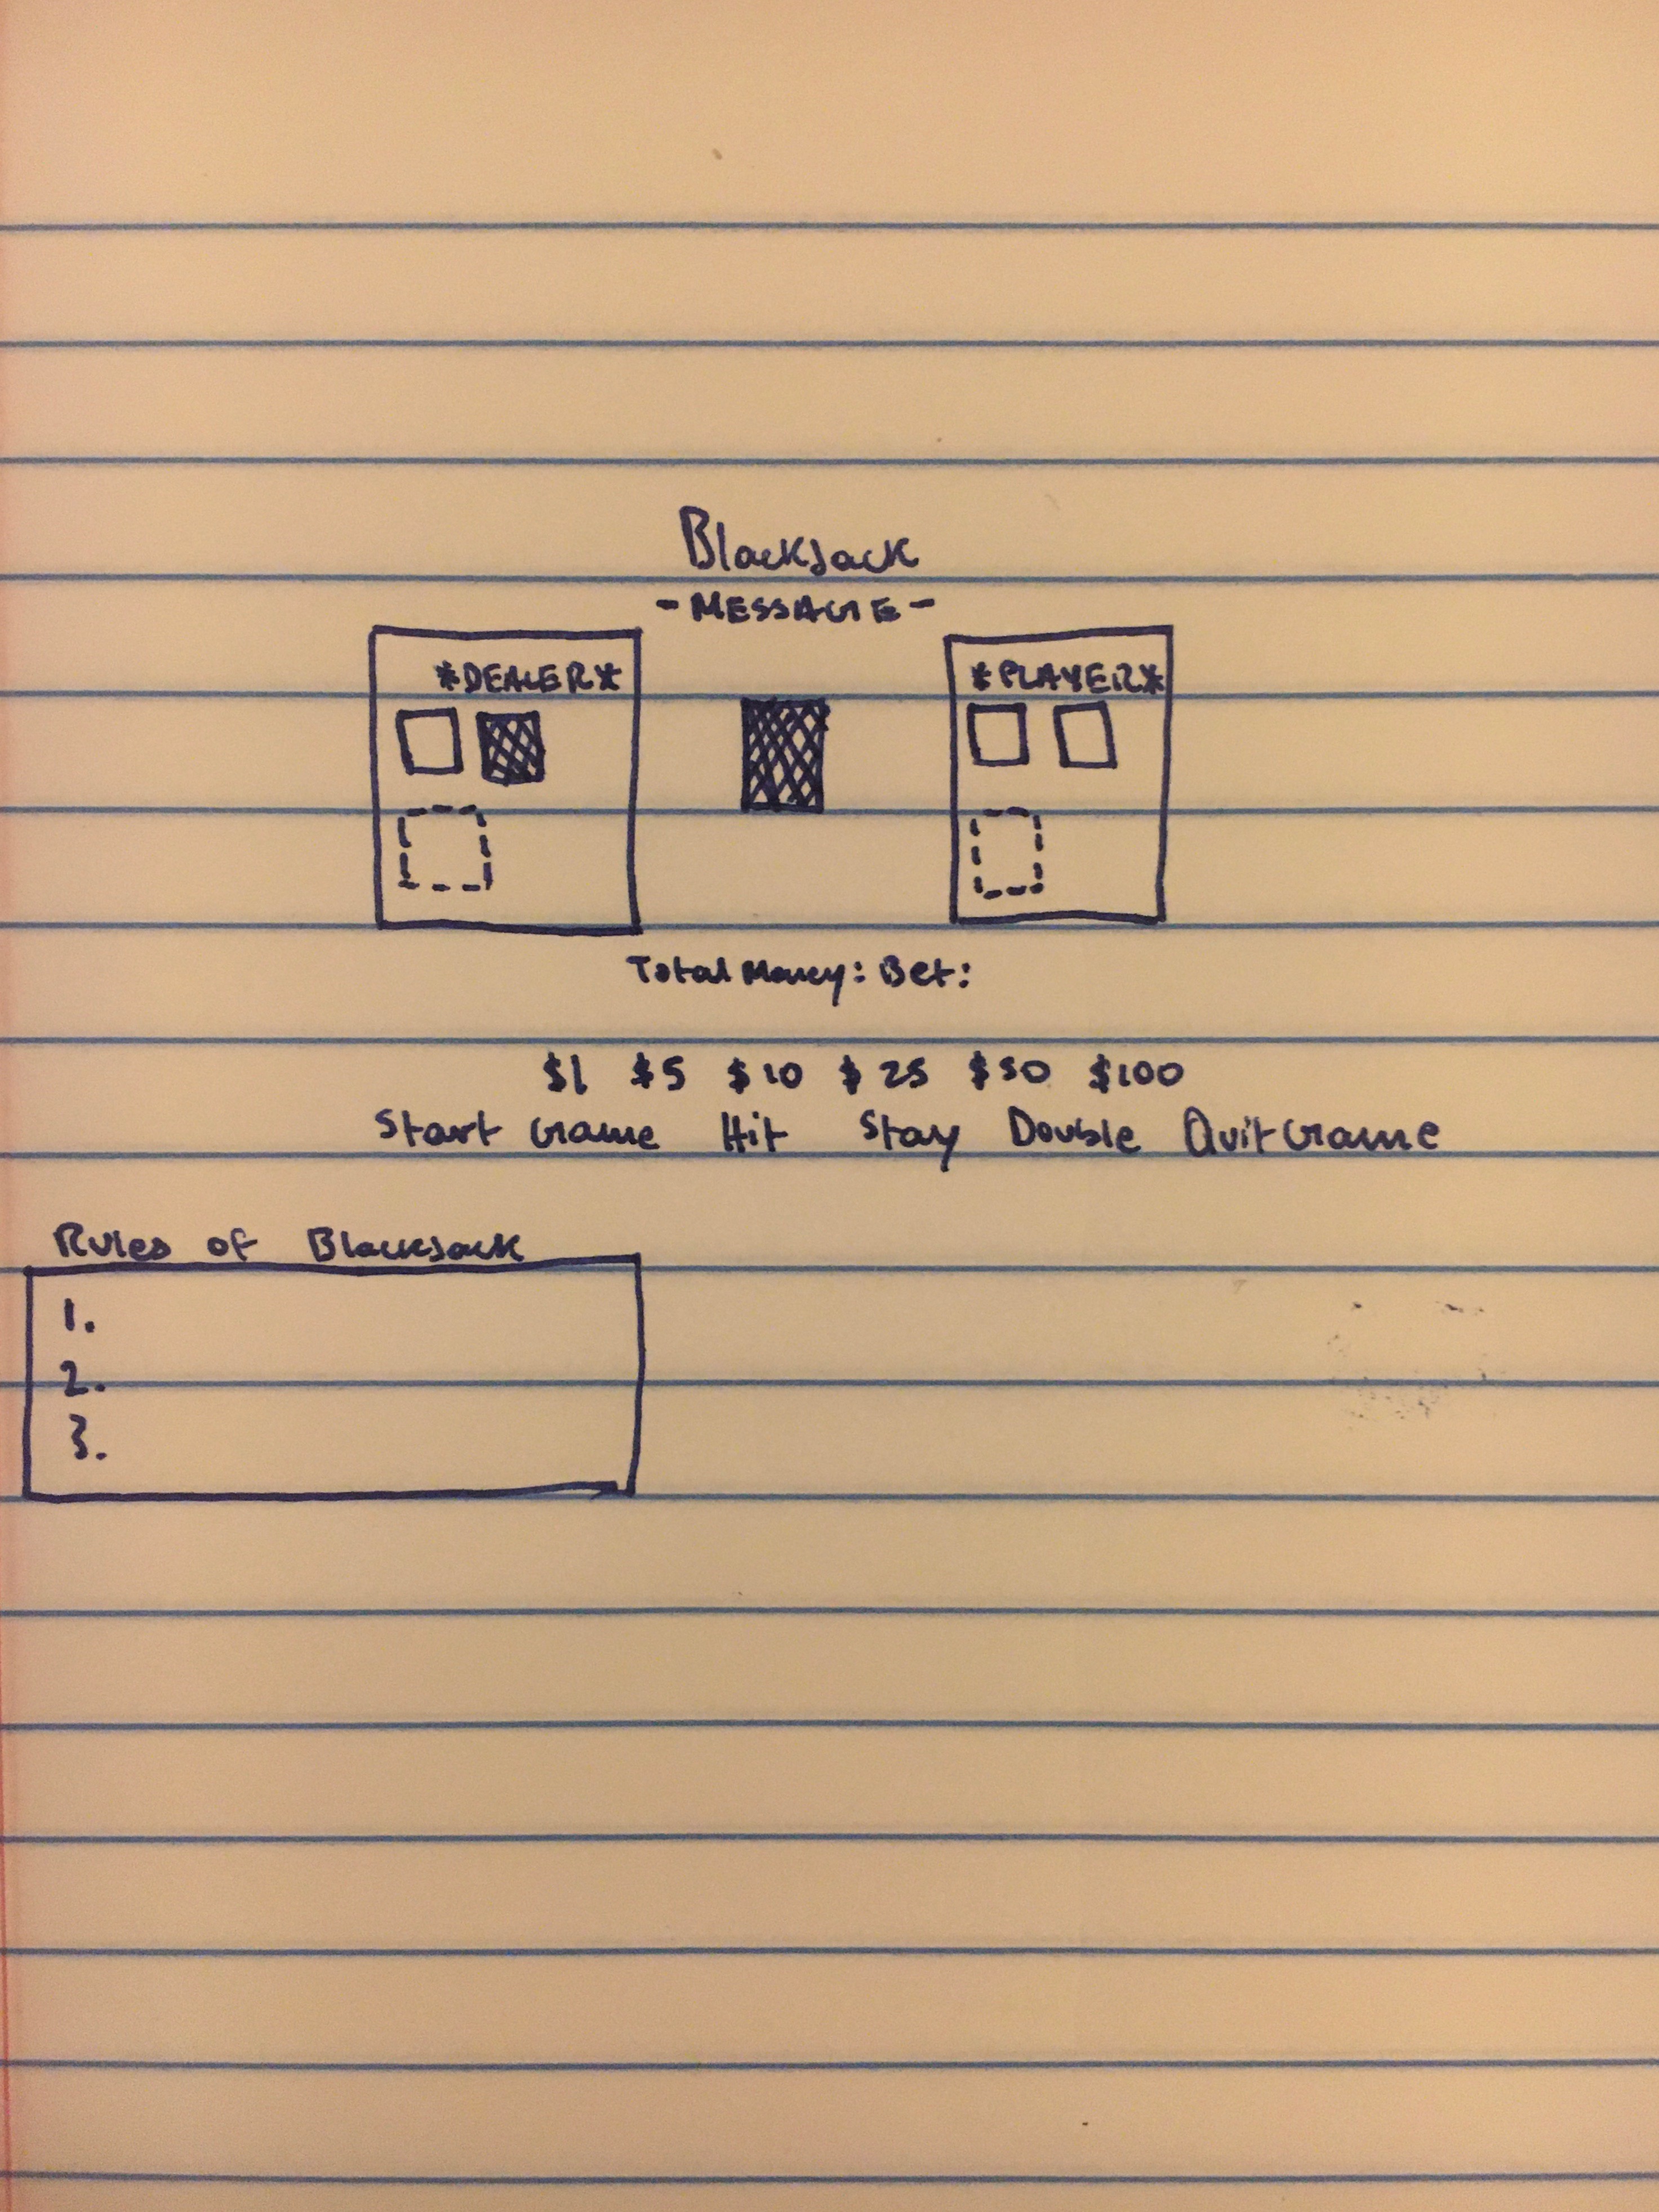 BlackJack
- MESSAGE -
*DEALER*
*PLAYER*
Total Money: Bet:
$1 $5 $10 $25 $50 $100
Start Game Hit Stay Double Quit Game
Rules of BlackJack
1.
2.
3.